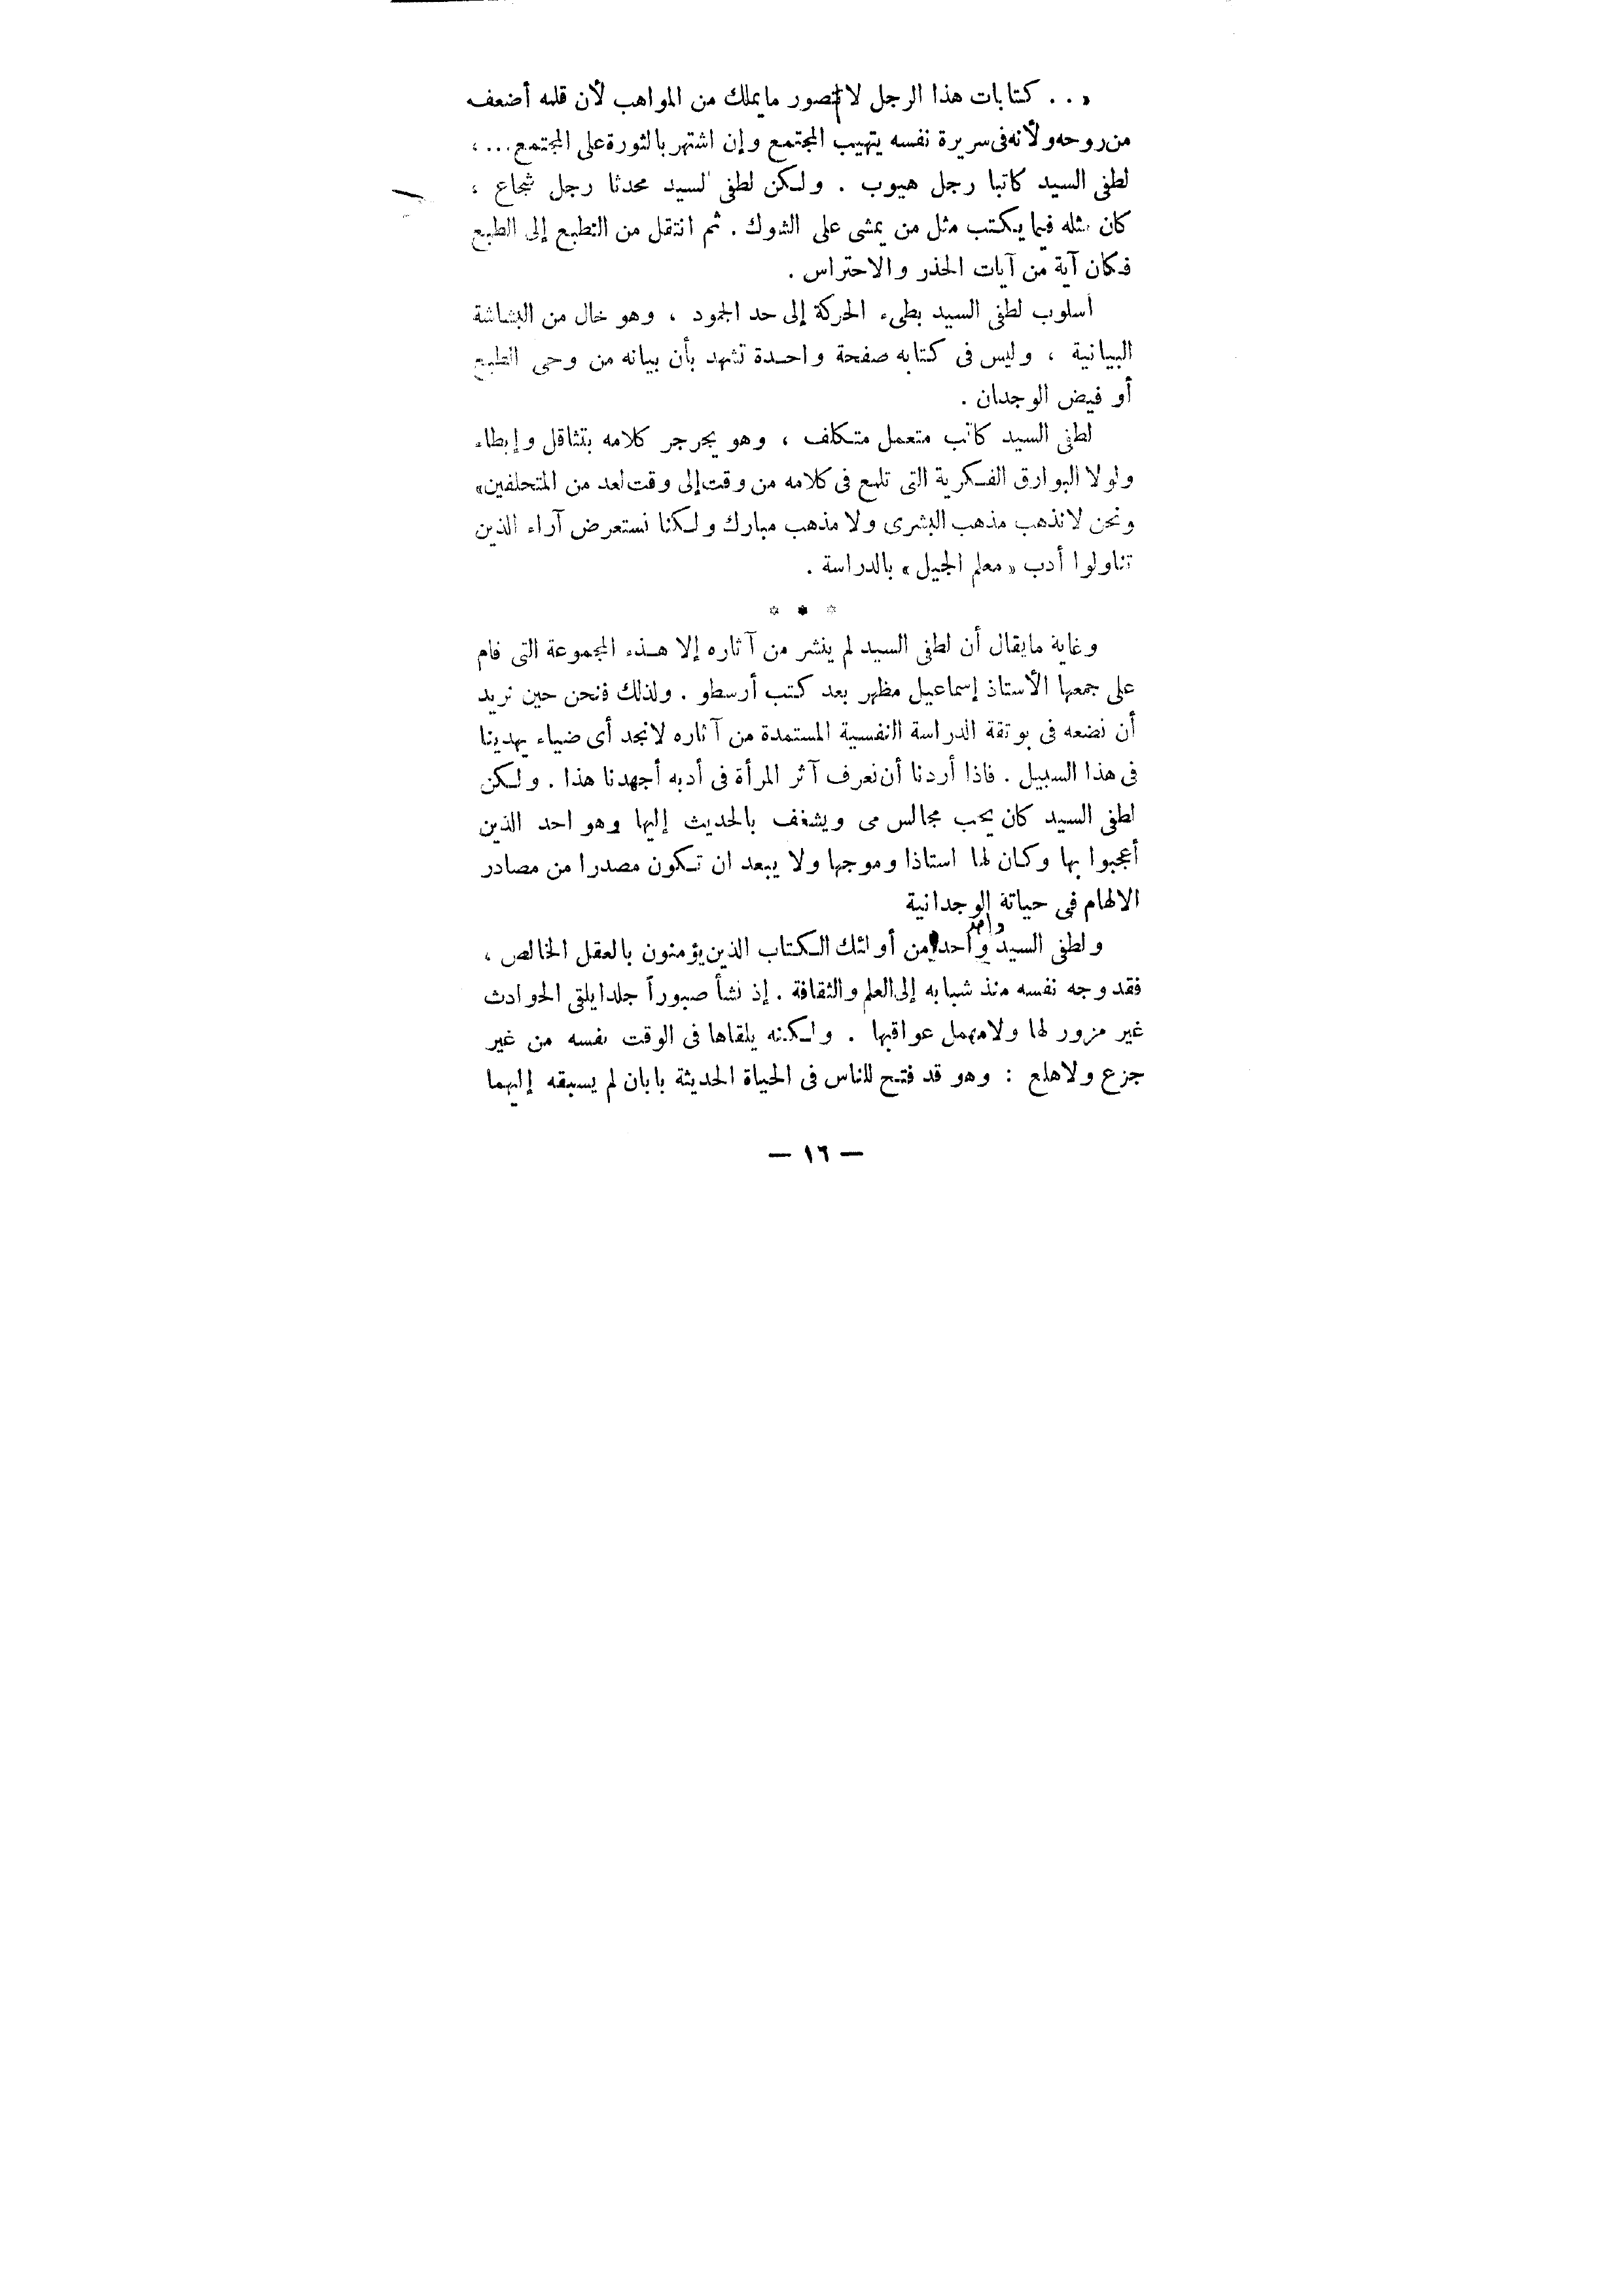 « . . كتابات هذا الرجل لا تصور مايملك من المواهب لأن قلمه أضعف
من روحه ولأنه فى سريرة نفسه يتهيب المجتمع وإن اشتهر بالثورة على المجتمع ... ،
لطفى السيد كاتبا رجل هيوب . ولكن لطفى السيد محدثا رجل شجاع ،
كان مثله فيما يكتب مثل من يمشى على الشوك . ثم انتقل من التطبع إلى الطبع
فكان آية من آيات الحذر والاحتراس .
أسلوب لطفى السيد بطىء الحركة إلى حد الجمود ، وهو خال من البشاشة
البيانية ، وليس فى كتابه صفحة واحدة تشهد بأن بيانه من وحى الطبع
أو فيض الوجدان .
لطفى السيد كاتب متعمل متكلف ، وهو يجرجر كلامه بتثاقل وإبطاء
ولولا البوارق الفكرية التى تلمع فى كلامه من وقت إلى وقت لعد من المتخلفين»
ونحن لانذهب مذهب البشرى ولا مذهب مبارك ولكنا نستعرض آراء الذين
تناولوا أدب «معلم الجيل» بالدراسة .
* * *
وغاية مايقال أن لطفى السيد لم ينشر من آثاره إلا هذه المجموعة التى قام
على جمعها الأستاذ إسماعيل مظهر بعد كتب أرسطو . ولذلك فنحن حين نريد
أن نضعه فى بوتقة الدراسة النفسية المستمدة من آثاره لانجد أى ضياء يهدينا
فى هذا السبيل . فاذا أردنا أن نعرف آثر المرأة فى أدبه أجهدنا هذا . ولكن
لطفى السيد كان يحب مجالس مى ويشغف بالحديث إليها وهو احد الذين
أعجبوا بها وكان لها استاذا وموجها ولا يبعد ان تكون مصدرا من مصادر
الالهام فى حياتة الوجدانية
واحد
ولطفى السيد واحدا من أولئك الكتاب الذين يؤمنون بالعقل الخالص ،
فقد وجه نفسه منذ شبابه إلى العلم والثقافة . إذ نشأ صبوراً جلدا يلقى الحوادث
غير مزور لها ولامهمل عواقبها . ولكنه يلقاها فى الوقت نفسه من غير
جزع ولاهلع : وهو قد فتح للناس فى الحياة الحديثة بابان لم يسبقه إليهما
— ١٦ —